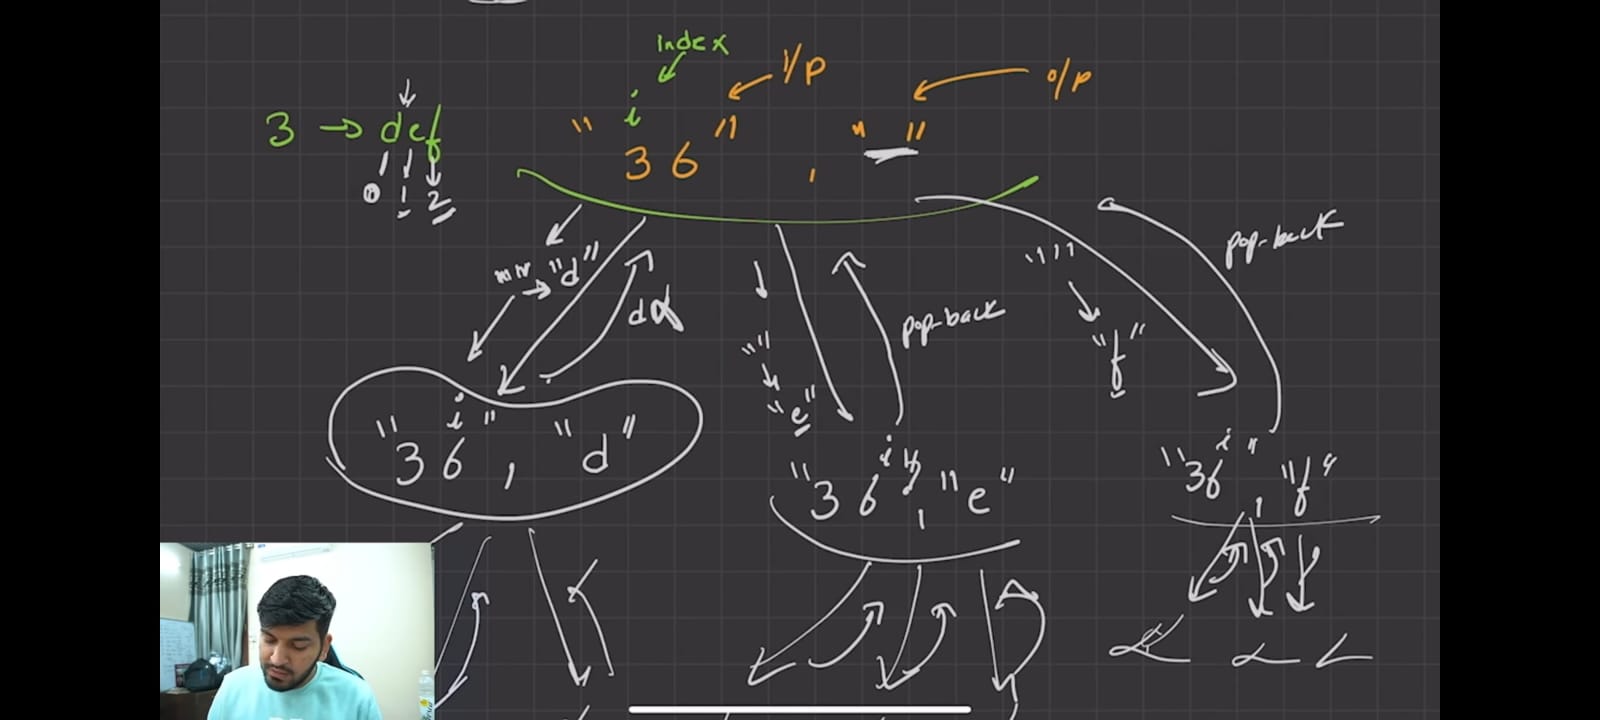 index
i/p
o/p
3 → def
0 1 2
i
" 36 " , " "
"d"
d
pop-back
""
"e"
pop-back
""
"f"
i
"36", "d"
i
"36", "e"
i
"36", "f"